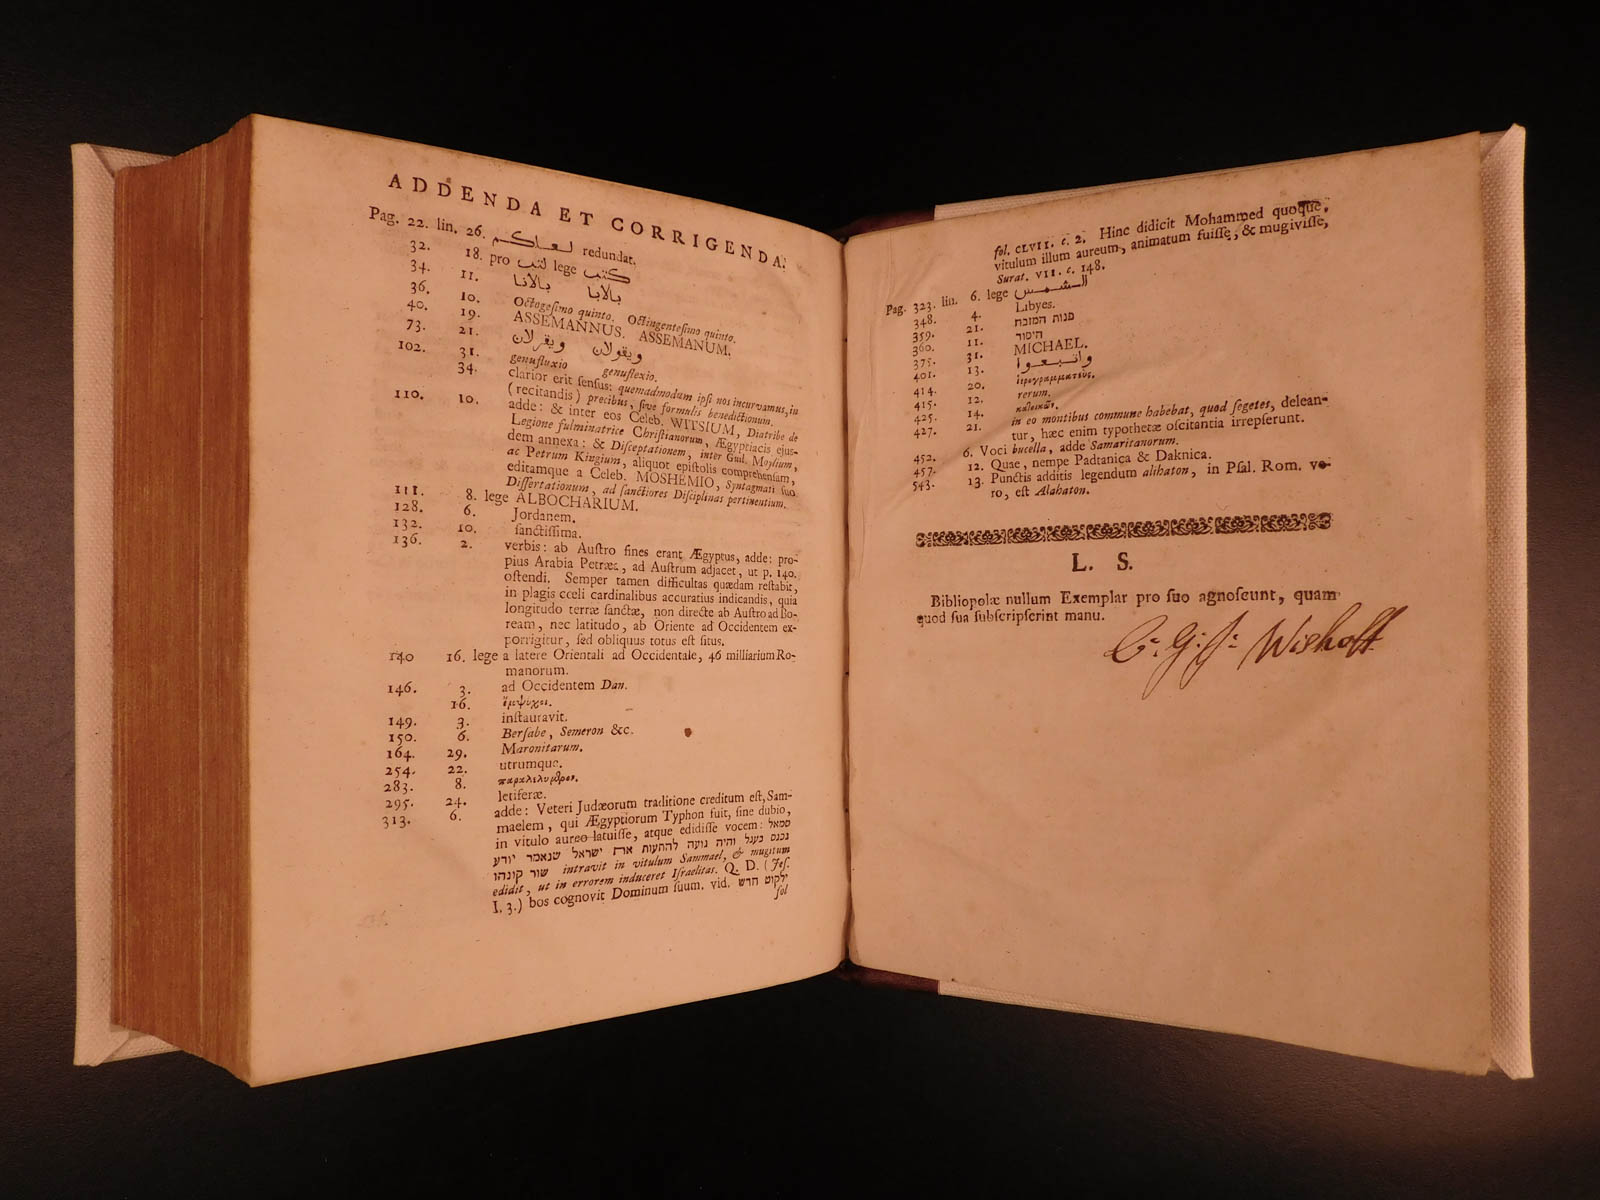 ADDENDA ET CORRIGENDA.
Pag. 22. lin. 26. لعاكم redundat.
32. 18. pro لتب lege كتب
34. 11. بالانا بالابا
36. 10. Octogesimo quinto. Octingentesimo quinto.
40. 19. ASSEMANNUS. ASSEMANUM.
73. 21. ويقرلان ويقولان
102. 31. genufluxio genuflexio.
34. clarior erit sensus: quemadmodum ipsi nos incurvamus, in
(recitandis) precibus, sive formulis benedictionum.
110. 10. adde: & inter eos Celeb. WITSIUM, Diatribe de
Legione fulminatrice Christianorum, Ægyptiacis ejus-
dem annexa: & Disceptationem, inter Guil. Moylium,
ac Petrum Kingium, aliquot epistolis comprehensam,
editamque a Celeb. MOSHEMIO, Syntagmati suo
Dissertationum, ad sanctiores Disciplinas pertinentium.
111. 8. lege ALBOCHARIUM.
128. 6. Jordanem.
132. 10. sanctissima.
136. 2. verbis: ab Austro fines erant Ægyptus, adde: pro-
pius Arabia Petræa, ad Austrum adjacet, ut p. 140.
ostendi. Semper tamen difficultas quædam restabit,
in plagis cœli cardinalibus accuratius indicandis, quia
longitudo terræ sanctæ, non directe ab Austro ad Bo-
ream, nec latitudo, ab Oriente ad Occidentem ex-
porrigitur, sed obliquus totus est situs.
140 16. lege a latere Orientali ad Occidentale, 46 milliarium Ro-
manorum.
146. 3. ad Occidentem Dan.
16. ἔμψυχοι.
149. 3. instauravit.
150. 6. Bersabe, Semeron &c.
164. 29. Maronitarum.
254. 22. utrumque.
283. 8.
295. 24. letiferæ.
313. 6. adde: Veteri Judæorum traditione creditum est, Sam-
maelem, qui Ægyptiorum Typhon fuit, sine dubio,
in vitulo aureo latuisse, atque edidisse vocem: סמאל
נכנס בעגל והיה גועה להתעות את ישראל שנאמר ידע
שור קונהו intravit in vitulum Sammael, & mugitum
edidit, ut in errorem induceret Israelitas. Q. D. (Jes.
I. 3.) bos cognovit Dominum suum. vid. ילקוט חדש
fol
fol. CLVII. c. 2. Hinc didicit Mohammed quoque,
vitulum illum aureum, animatum fuisse, & mugivisse,
Surat. VII. c. 148.
Pag. 323. lin. 6. lege الشمس
348. 4. Libyes.
359. 21. פנות המזבח
360. 11. היסוד
375. 31. MICHAEL.
401. 13. واتبعوا
414. 20. ἱερογραμματεύς.
415. 12. rerum.
425. 14.
427. 21. in eo montibus commune habebat, quod segetes, delean-
tur, hæc enim typothetæ oscitantia irrepserunt.
452. 6. Voci bucella, adde Samaritanorum.
457. 12. Quæ, nempe Padtanica & Daknica.
543. 13. Punctis additis legendum alihaton, in Psal. Rom. ve-
ro, est Alahaton.
L. S.
Bibliopolæ nullum Exemplar pro suo agnoscunt, quam
quod sua subscripserint manu.
C. G. J. Wishoff